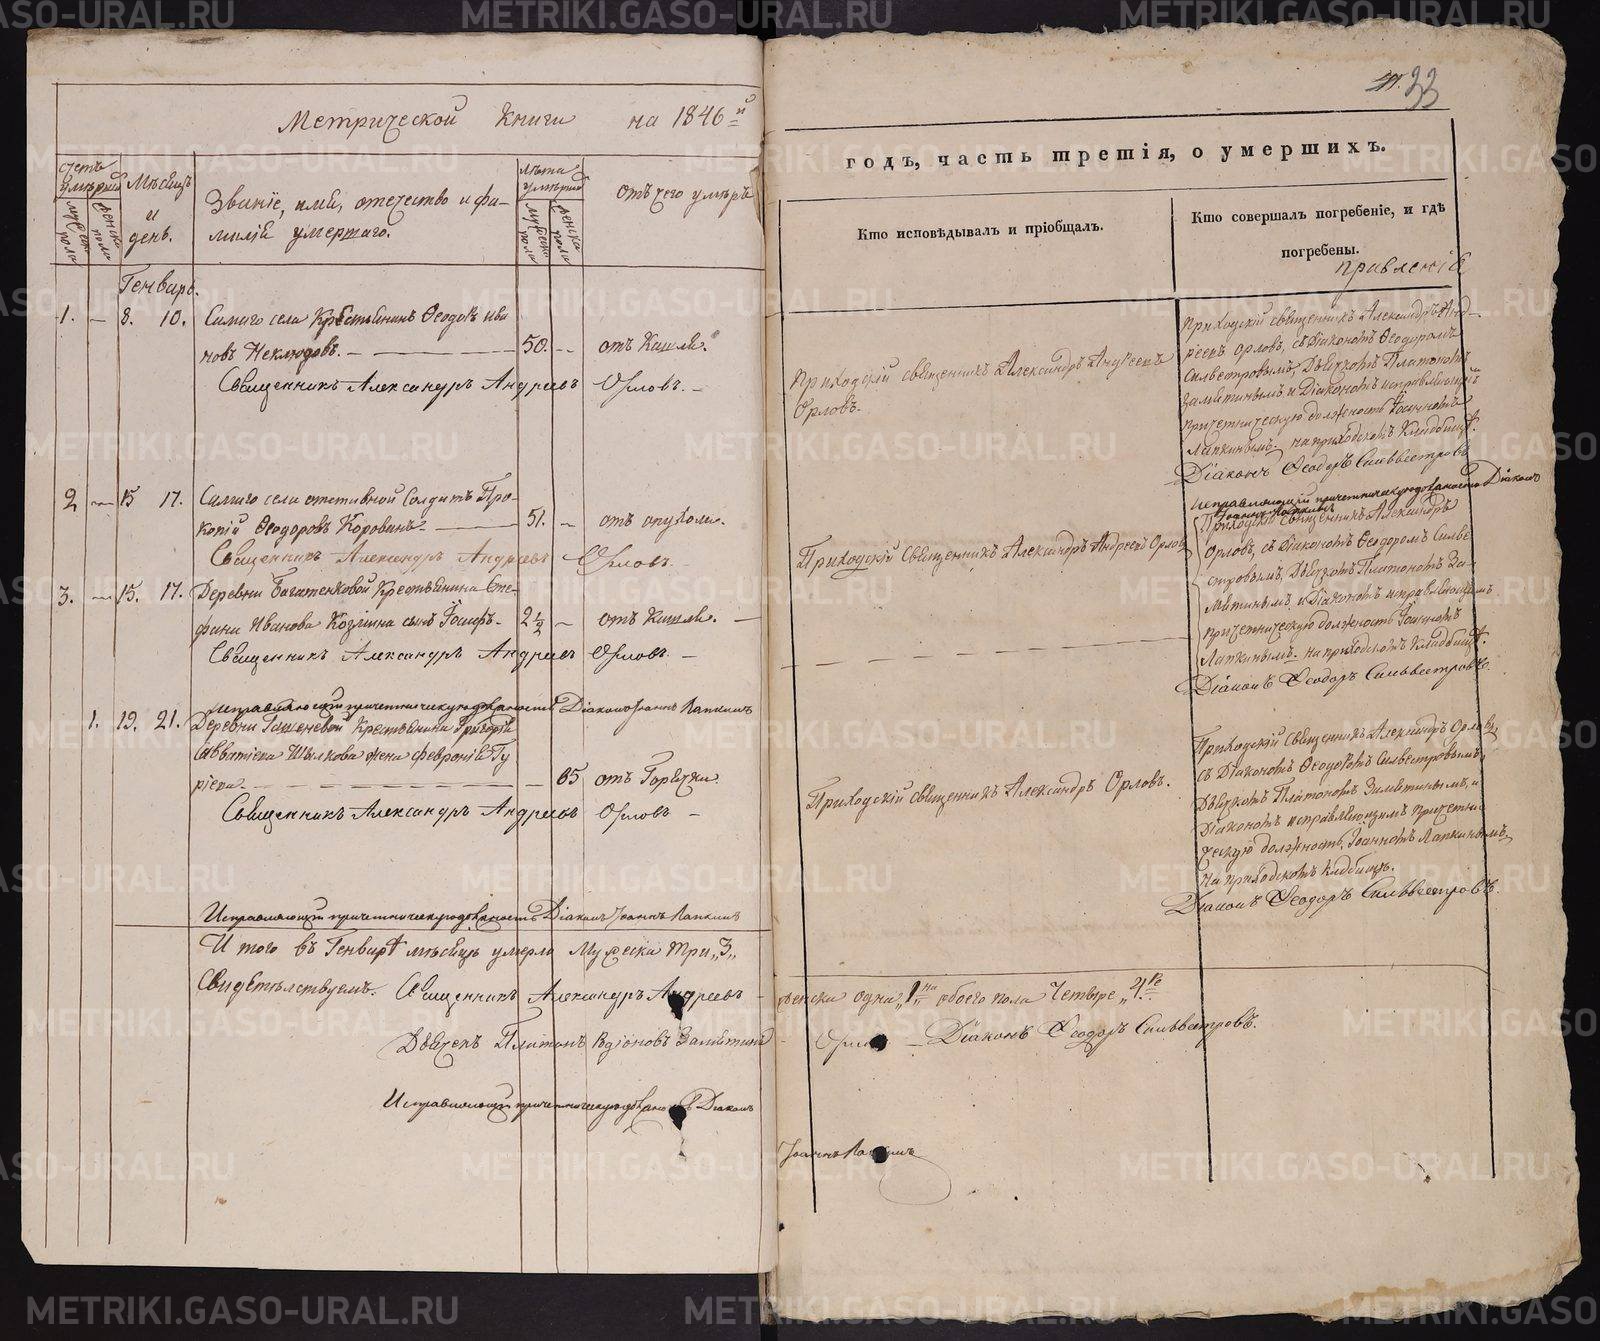 Метрической Книги на 1846й
Счетъ умершихъ
Мѣсяцъ и день.
Званіе, имя, отчество и фа-
милія умершаго.
Лѣта умершихъ
отъ чего умеръ
мужеска пола
женска пола
мужеска пола
женска пола
Генварь.
1. — 8. 10. Самаго села Крестьянинъ Ѳеодоръ Ива
новъ Неклюдовъ. — 50. — отъ Кашля.
Священникъ Александръ Андреевъ Орловъ. —
2 — 15 17. Самаго села отставной Солдатъ Про-
копій Ѳеодоровъ Коровинъ — 51. — отъ опухоли.
Священникъ Александръ Андреевъ Орловъ. —
3. — 15. 17. Деревни Крестьянина Сте-
фана Иванова сынъ Іосифъ. 2½ — отъ Кашля. —
Священникъ Александръ Андреевъ Орловъ. —
Исправляющій причетническую должность Діаконъ Іоаннъ Лапкинъ
1. 19. 21. Деревни Крестьянина Григорія
Савватіева жена Февронія Гу
ріева. — 65 отъ Горячки
Священникъ Александръ Андреевъ Орловъ —
Исправляющій причетническую должность Діаконъ Іоаннъ Лапкинъ
И того въ Генварѣ мѣсяцѣ умерло Мужеска три „3„
Свидѣтелствуемъ. Священникъ Александръ Андреевъ
Дьячекъ Платонъ Замятинъ
Исправляющій причетническую должность Діаконъ
33
годъ, часть третія, о умершихъ.
Кто исповѣдывалъ и пріобщалъ.
Кто совершалъ погребеніе, и гдѣ
погребены.
Приходскій священникъ Александръ Андреевъ
Орловъ.
Приходскій священникъ Александръ Анд-
реевъ Орловъ, съ Діакономъ Ѳеодоромъ
Силвестровымъ, Дьячкомъ Платономъ
Замятинымъ и Діакономъ исправляющимъ
причетническую должность Іоанномъ
Лапкинымъ. на приходскомъ Кладбищѣ.
Діаконъ Ѳеодоръ Сильвестровъ
Исправляющій причетническую должность Діаконъ
Іоаннъ Лапкинъ
Приходскій священникъ Александръ Андреевъ Орловъ
Приходскій священникъ Александръ
Орловъ, съ Діакономъ Ѳеодоромъ Силве
стровымъ, Дьячкомъ Платономъ За-
мятинымъ и Діакономъ исправляющимъ
причетническую должность Іоанномъ
Лапкинымъ. на приходскомъ Кладбищѣ.
Діаконъ Ѳеодоръ Сильвестровъ.
Приходскій священникъ Александръ Орловъ.
Приходскій священникъ Александръ Орловъ
съ Діакономъ Ѳеодоромъ Силвестровымъ,
Дьячкомъ Платономъ Замятинымъ, и
Діакономъ исправляющимъ Причетни
ческую должность, Іоанномъ Лапкинымъ
на приходскомъ Кладбищѣ.
Діаконъ Ѳеодоръ Сильвестровъ.
женска одна „1на„ обоего пола Четыре „4ре„
Орловъ — Діаконъ Ѳеодоръ Сильвестровъ.
Іоаннъ Лапкинъ
METRIKI.GASO-URAL.RU